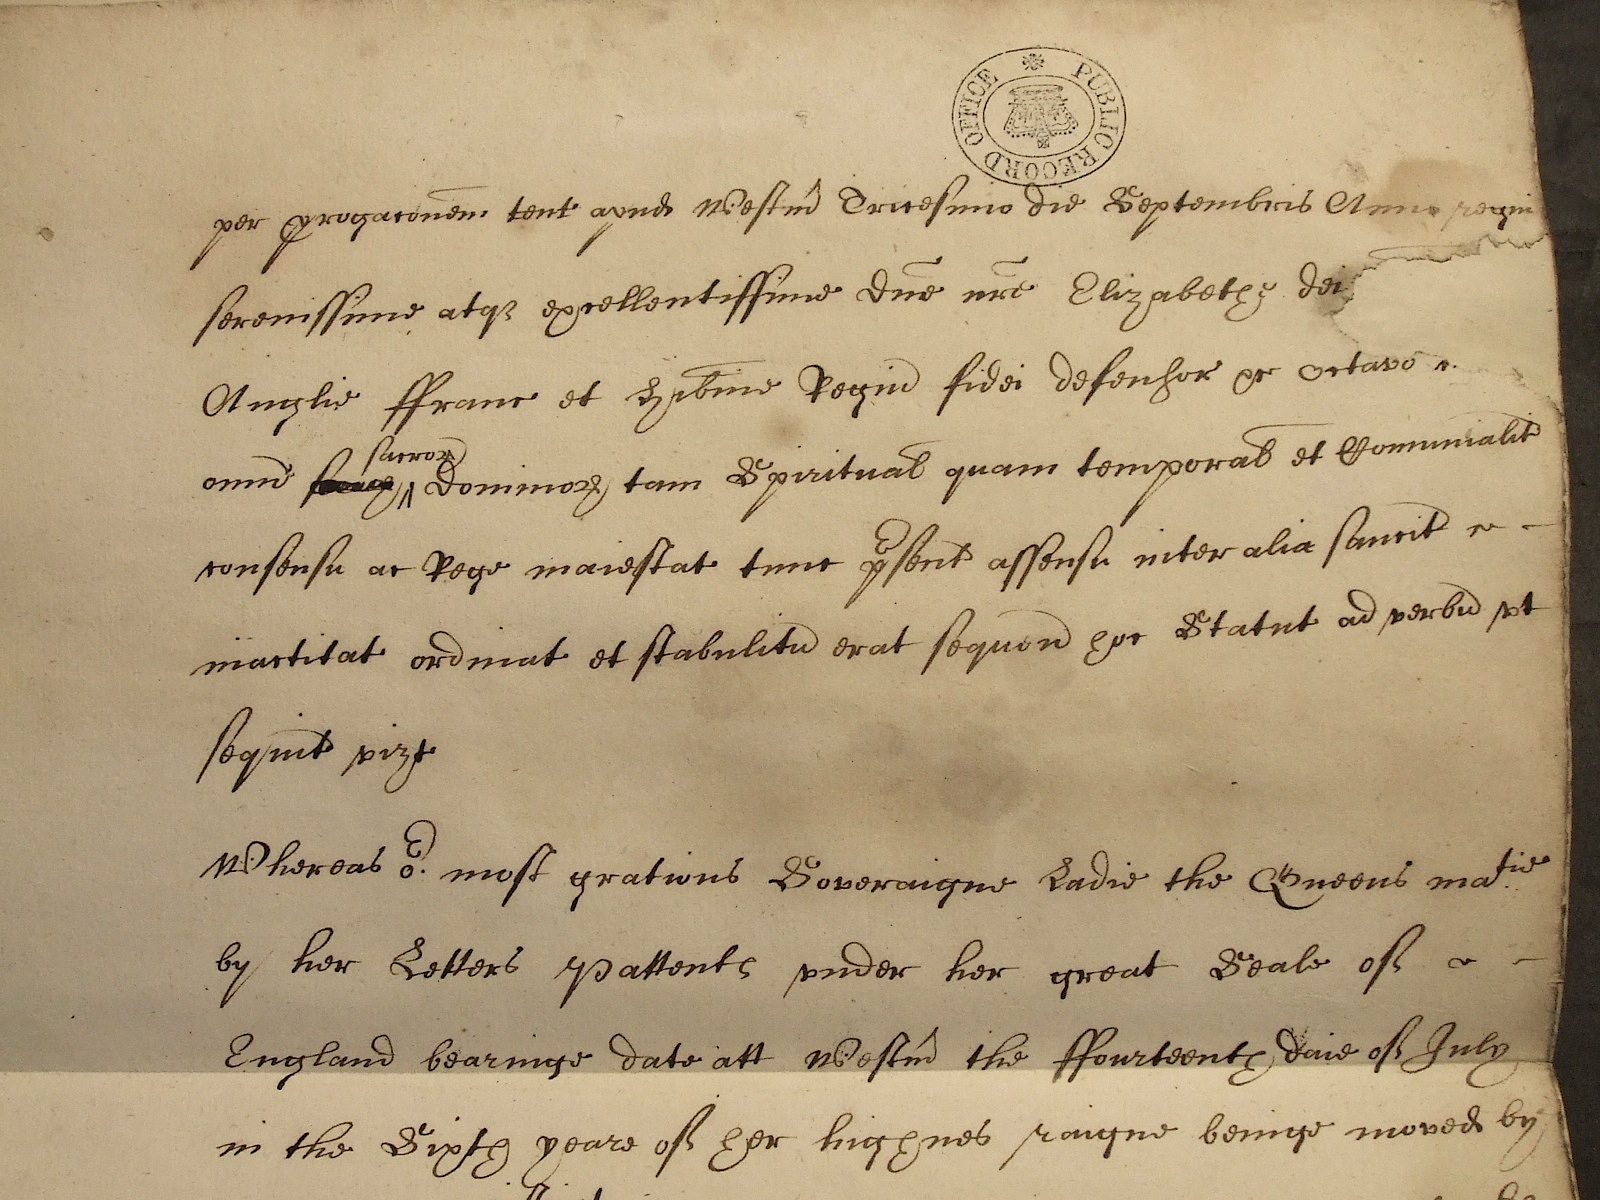 PUBLIC RECORD OFFICE
per progaconem tent apud Westm Tricesimo die Septembris Anno regni
serenissime atq excellentissime Dne nre Elizabeth dei
Anglie ffranc et Hibnie Regin fidei defensor &c octavo
omn sacror Dominor tam Spiritual quam temporal et Comunialit
consensu ac Rege maiestat tunc psent assensu inter alia sancit
inactitat ordinat et stabulitu erat sequen hoc Statut ad verbu vt
sequit vizt
Whereas or most gratious Soveraigne Ladie the Queens matie
by her Letters Pattents vnder her great Seale of
England bearinge date att Westm the ffourteenth daie of July
in the Sixth yeare of her highnes raigne beinge moved by